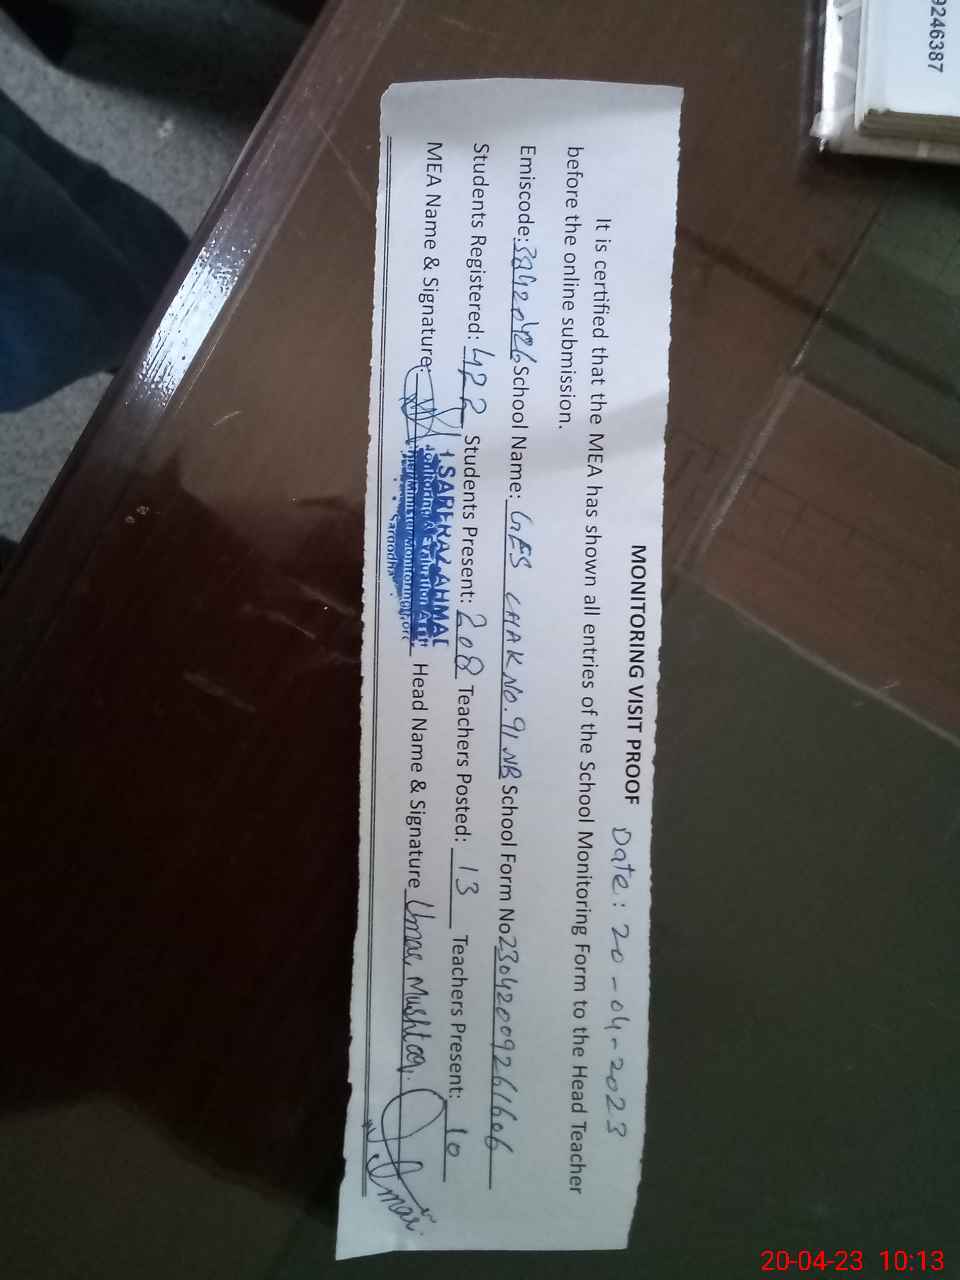 MONITORING VISIT PROOF Date: 20-04-2023
It is certified that the MEA has shown all entries of the School Monitoring Form to the Head Teacher
before the online submission.
Emiscode: 38420426 School Name: GES CHAK NO. 91 NB School Form No 23042009261606
Students Registered: 422 Students Present: 208 Teachers Posted: 13 Teachers Present: 10
MEA Name & Signature: Head Name & Signature Umar Mushtaq.
Sargodha
9246387
20-04-23 10:13